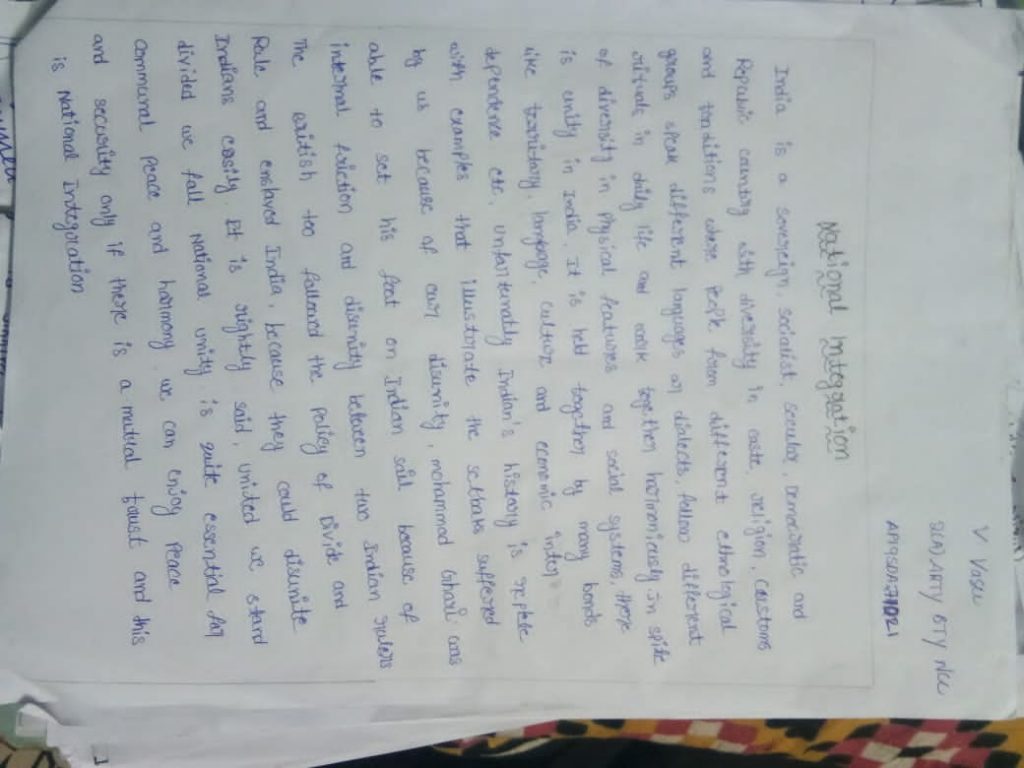 V Vasu
2(A) ARTY BTY NCC
AP19SDA271021
National Integration
India is a sovereign, socialist, secular, Democratic and
Republic country with diversity in caste, religion, customs
and tonditions where people from different ethnological
groups speak different languages or dialects, follow different
rituals in daily life and work together harmoniously in spite
of diversity in physical features and social systems, there
is unity in India. It is held together by many bonds
like territory, language, culture and economic inter
dependence etc. unfortunatly Indian's history is replete
with examples that illustorate the setbaks suffered
by us because of our disunity, mohammad Ghori was
able to set his foot on Indian soil because of
internal friction and disunity between two Indian rulers
The british too followed the policy of Divide and
Rule and enslaved India, because they could disunite
Indians easily. It is rightly said, united we stand
divided we fall National unity is quite essential for
communal peace and harmony. we can enjoy peace
and security only if there is a mutual trust and this
is National Integoration